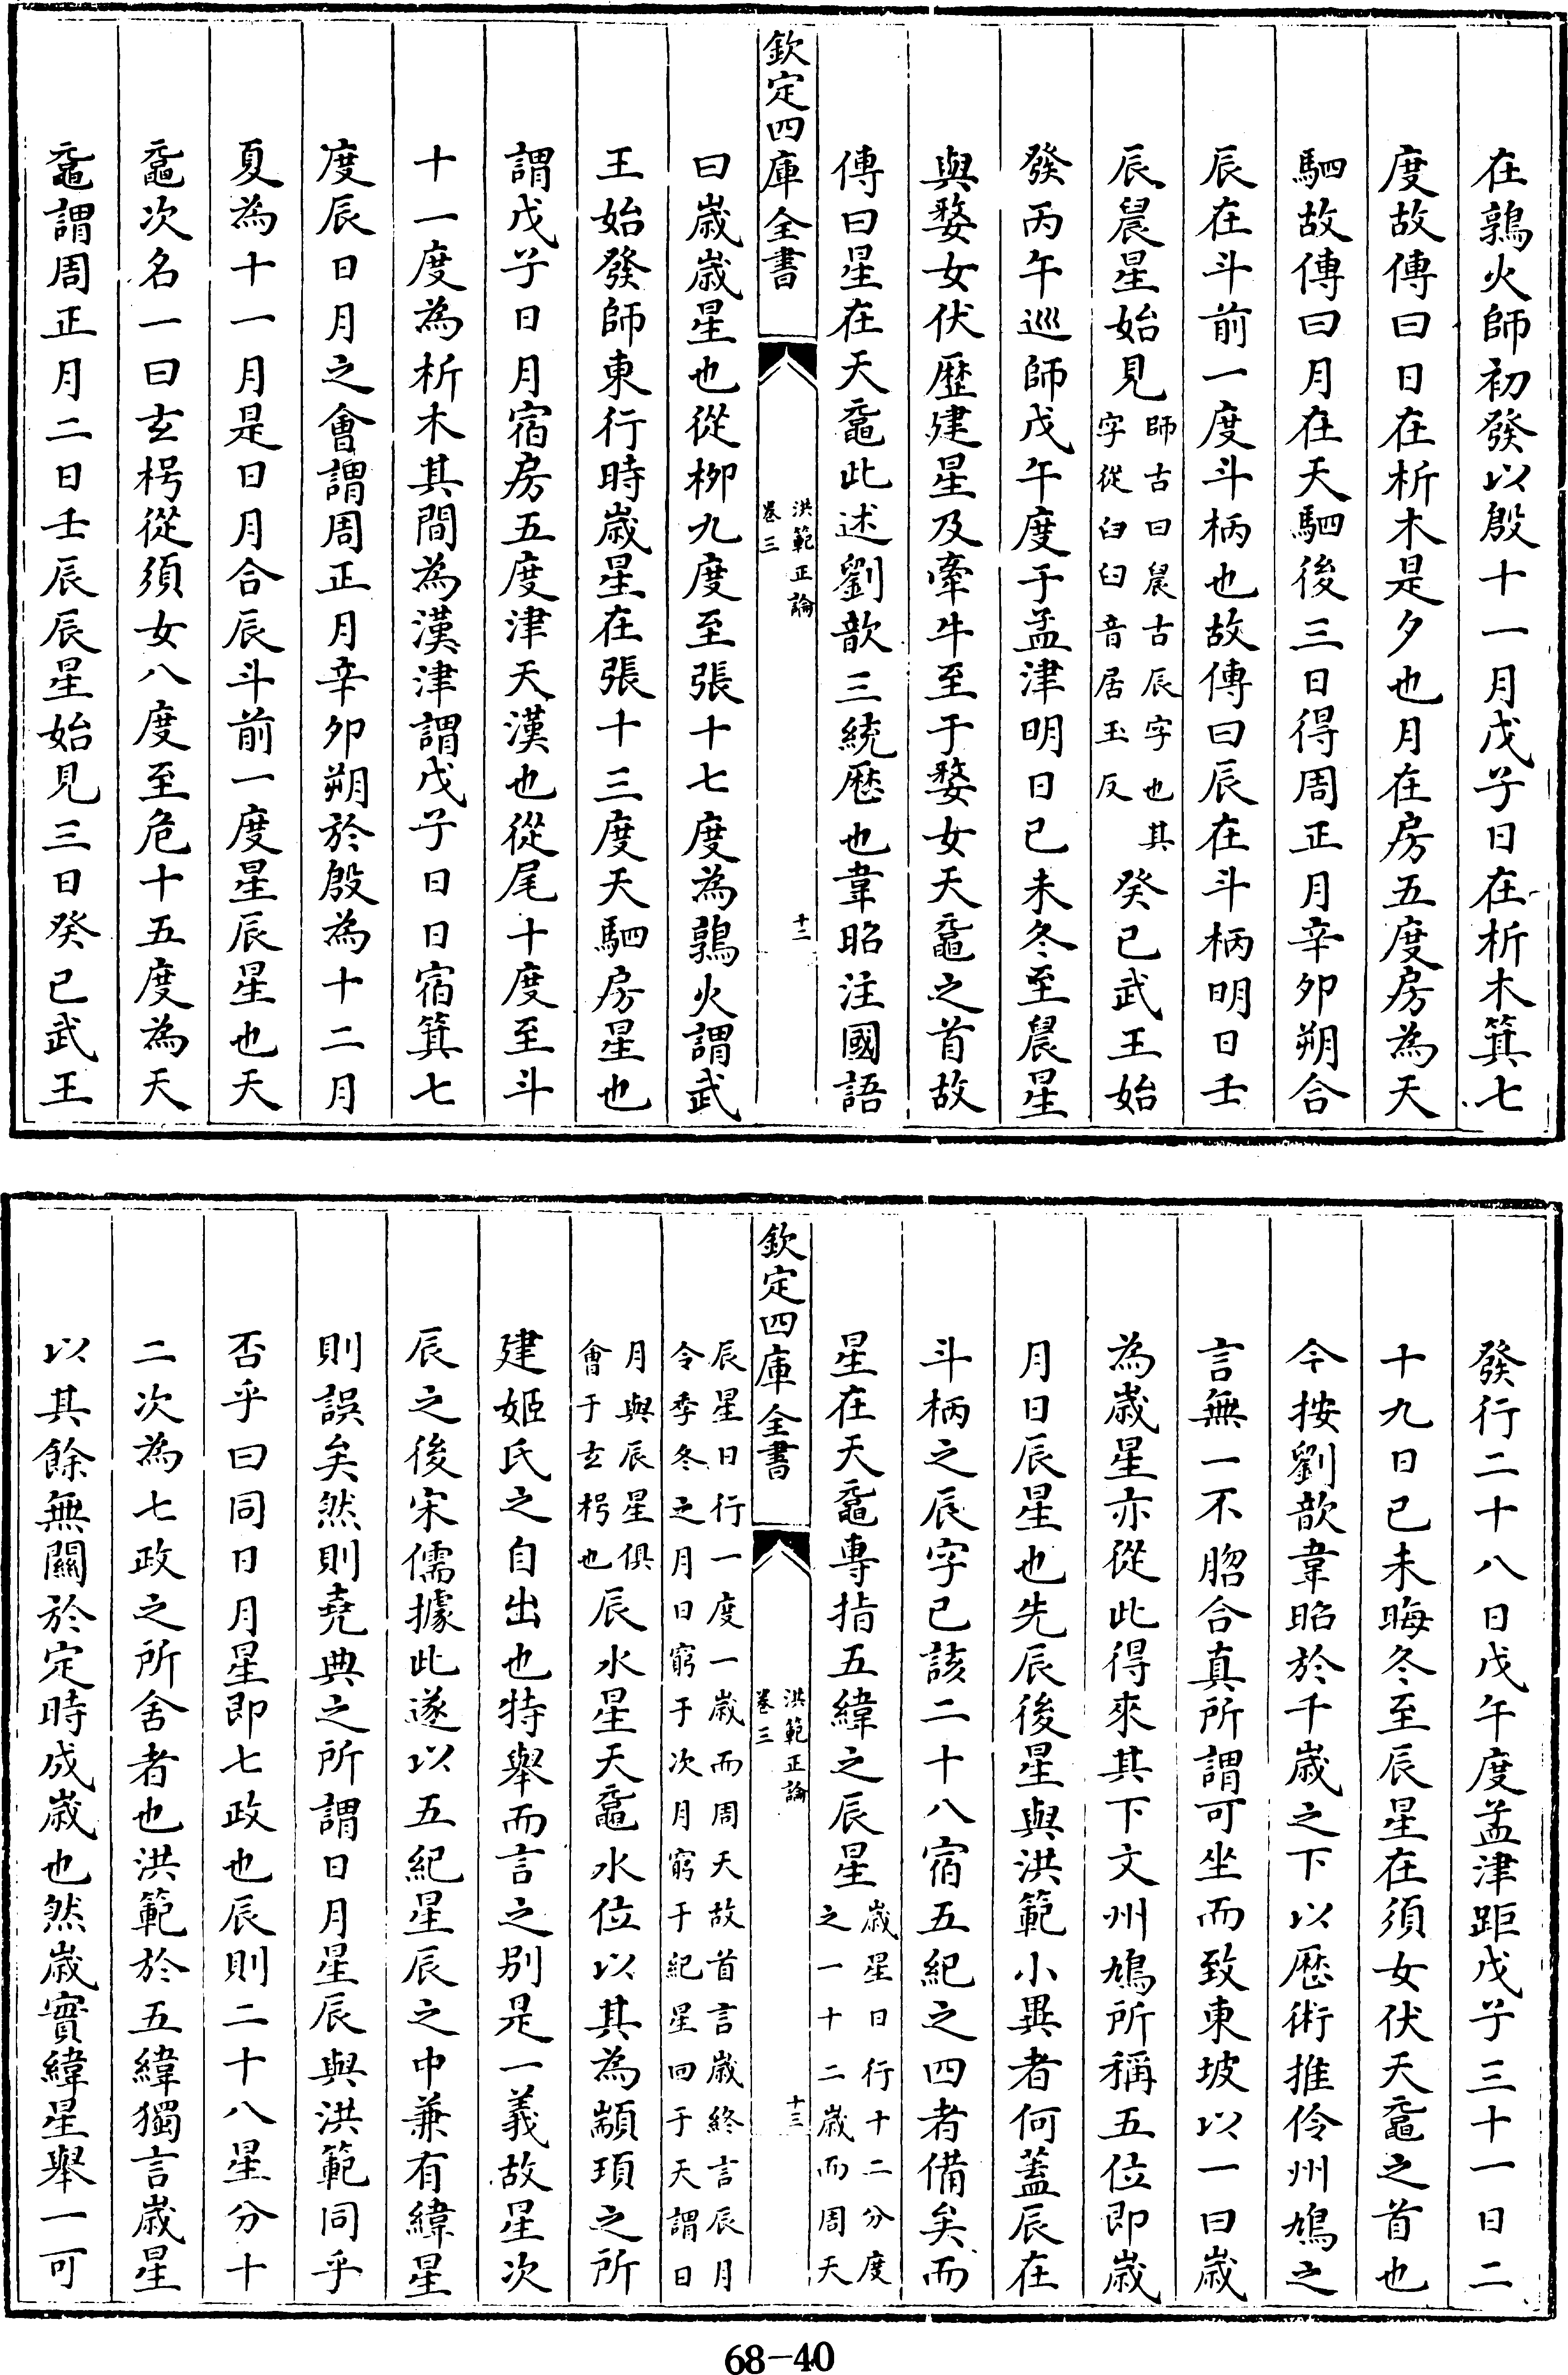 在鶉火師初發以殷十一月戊子日在析木箕七
度故傳曰日在析木是夕也月在房五度房為天
駟故傳曰月在天駟後三日得周正月辛卯朔合
辰在斗前一度斗柄也故傳曰辰在斗柄明日壬
辰晨星始見師古曰晨古辰字也其字從臼臼音居玉反癸巳武王始
發丙午巡師戊午度于孟津明日已未冬至晨星
與婺女伏歷建星及牽牛至于婺女天黿之首故
傳曰星在天黿此述劉歆三統歴也韋昭注國語
欽定四庫全書
洪範正論
卷三
十二
曰歲歲星也從栁九度至張十七度為鶉火謂武
王始發師東行時歲星在張十三度天駟房星也
謂戊子日月宿房五度津天漢也從尾十度至斗
十一度為析木其間為漢津謂戊子日日宿箕七
度辰日月之會謂周正月辛卯朔於殷為十二月
夏為十一月是日月合辰斗前一度星辰星也天
黿次名一曰玄枵從須女八度至危十五度為天
黿謂周正月二日壬辰辰星始見三日癸巳武王
發行二十八日戊午度孟津距戊子三十一日二
十九日已未晦冬至辰星在須女伏天黿之首也
今按劉歆韋昭於千歲之下以歴術推伶州鳩之
言無一不脗合真所謂可坐而致東坡以一曰歲
為歲星亦從此得來其下文州鳩所稱五位即歲
月日辰星也先辰後星與洪範小異者何蓋辰在
斗柄之辰字已該二十八宿五紀之四者備矣而
星在天黿專指五緯之辰星歲星日行十二分度之一十二歲而周天
欽定四庫全書
洪範正論
卷三
十三
辰星日行一度一歲而周天故首言歲終言辰月令季冬之月日窮于次月窮于紀星回于天謂日
月與辰星俱會于玄枵也辰水星天黿水位以其為顓頊之所
建姬氏之自出也特舉而言之别是一義故星次
辰之後宋儒據此遂以五紀星辰之中兼有緯星
則誤矣然則堯典之所謂日月星辰與洪範同乎
否乎曰同日月星即七政也辰則二十八星分十
二次為七政之所舍者也洪範於五緯獨言歲星
以其餘無關於定時成歲也然歲實緯星舉一可
68-40